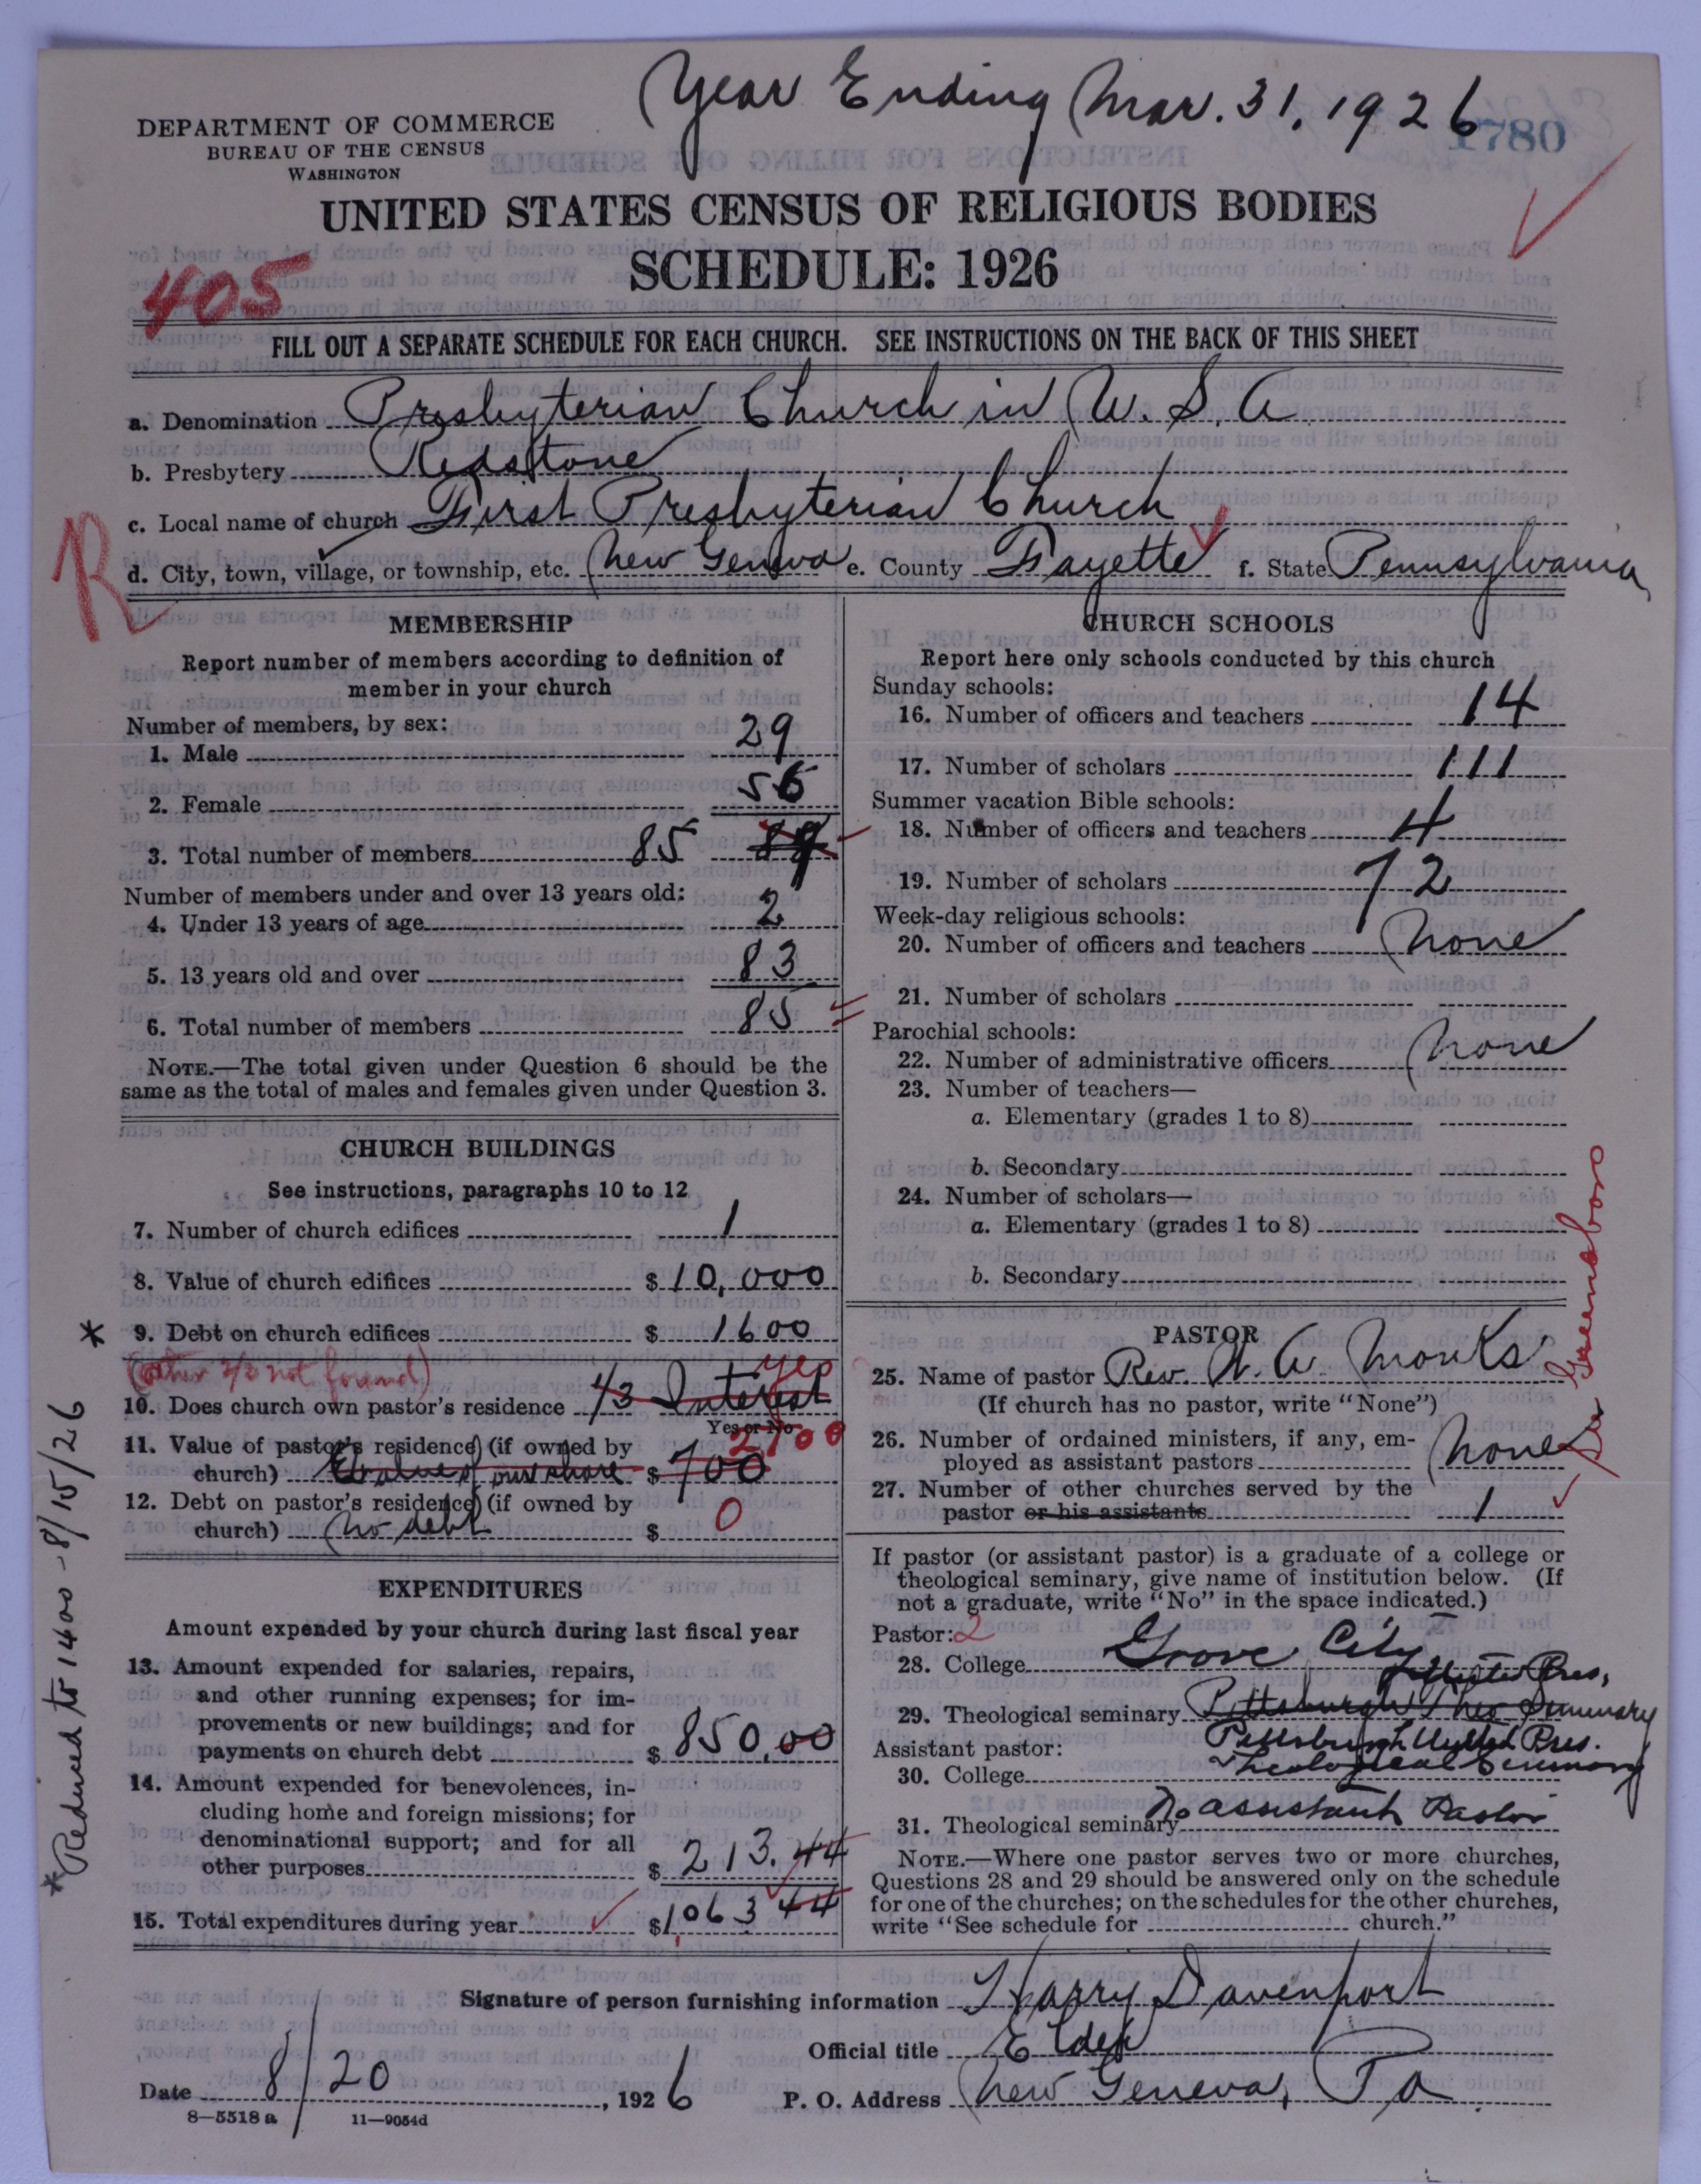 Year Ending Mar. 31, 1926
1780
DEPARTMENT OF COMMERCE
BUREAU OF THE CENSUS
WASHINGTON
UNITED STATES CENSUS OF RELIGIOUS BODIES
SCHEDULE: 1926
405
FILL OUT A SEPARATE SCHEDULE FOR EACH CHURCH. SEE INSTRUCTIONS ON THE BACK OF THIS SHEET
a. Denomination Presbyterian Church in U. S. A
b. Presbytery Redstone
c. Local name of church First Presbyterian Church
R
d. City, town, village, or township, etc. New Geneva e. County Fayette f. State Pennsylvania
MEMBERSHIP
Report number of members according to definition of
member in your church
Number of members, by sex:
1. Male 29
2. Female 56
3. Total number of members 85
Number of members under and over 13 years old:
4. Under 13 years of age 2
5. 13 years old and over 83
6. Total number of members 85
NOTE.—The total given under Question 6 should be the
same as the total of males and females given under Question 3.
CHURCH BUILDINGS
See instructions, paragraphs 10 to 12
7. Number of church edifices 1
8. Value of church edifices $ 10,000
* 9. Debt on church edifices $ 1600
(other 2/3 not found) yes
10. Does church own pastor's residence 1/3 Interest
Yes or No
2100
11. Value of pastor's residence (if owned by
church) Value of our share $ 700
12. Debt on pastor's residence (if owned by
church) No debt $ 0
* Reduced to 1400 - 8/15/26
EXPENDITURES
Amount expended by your church during last fiscal year
13. Amount expended for salaries, repairs,
and other running expenses; for im-
provements or new buildings; and for
payments on church debt $ 850.00
14. Amount expended for benevolences, in-
cluding home and foreign missions; for
denominational support; and for all
other purposes $ 213.44
15. Total expenditures during year $ 1,063 44
CHURCH SCHOOLS
Report here only schools conducted by this church
Sunday schools:
16. Number of officers and teachers 14
17. Number of scholars 111
Summer vacation Bible schools:
18. Number of officers and teachers 4
19. Number of scholars 72
Week-day religious schools:
20. Number of officers and teachers None
21. Number of scholars
Parochial schools:
22. Number of administrative officers None
23. Number of teachers—
a. Elementary (grades 1 to 8)
b. Secondary
24. Number of scholars—
a. Elementary (grades 1 to 8)
b. Secondary
PASTOR
25. Name of pastor Rev. W. A. Monks
(If church has no pastor, write "None")
26. Number of ordained ministers, if any, em-
ployed as assistant pastors None
27. Number of other churches served by the
pastor or his assistants 1
See Greensboro
If pastor (or assistant pastor) is a graduate of a college or
theological seminary, give name of institution below. (If
not a graduate, write "No" in the space indicated.)
Pastor: 2
28. College Grove City
United Pres,
29. Theological seminary Pittsburgh Theo Seminary
Assistant pastor: Pittsburgh United Pres.
30. College Theological Seminary
31. Theological seminary No assistant Pastor
NOTE.—Where one pastor serves two or more churches,
Questions 28 and 29 should be answered only on the schedule
for one of the churches; on the schedules for the other churches,
write "See schedule for church."
Signature of person furnishing information Harry Davenport
Official title Elder
Date 8/20, 1926 P. O. Address New Geneva, Pa
8—5518 a 11—9054d